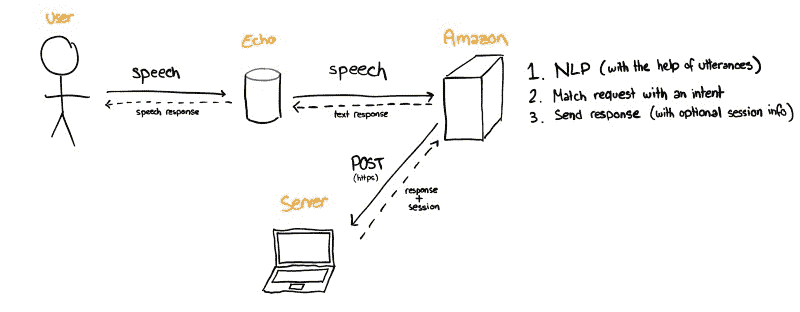 User
Echo
Amazon
speech
speech response
speech
text response
1. NLP (with the help of utterances)
2. Match request with an intent
3. Send response (with optional session info)
POST
(https)
response
+
session
Server